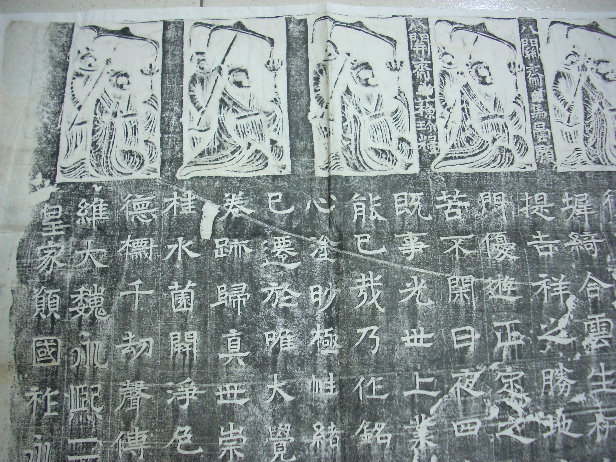 八關齋主
關齋主
綺合雲生
提吉祥之勝地
優遊正定之
苦不閑日夜四
既事光世上業
能已哉乃作銘
心澄眇極性緒
已遷於唯大覺
卷跡歸真世崇
桂水菌開淨色
德千劫聲傳
維大魏永熙二
皇家願國祚永